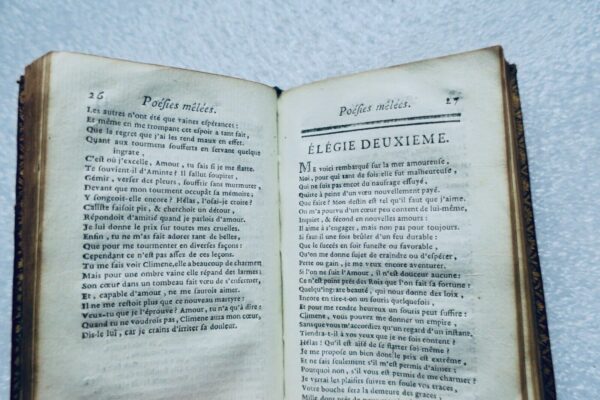 26
Poësies mêlées.
Les autres n'ont été que vaines espérances :
Et même en me trompant cet espoir a tant fait,
Que le regret que j'ai les rend maux en effet.
Quant aux tourmens soufferts en servant quelque
ingrate,
C'est où j'excelle, Amour, tu sais si je me flatte.
Te souvient-il d'Aminte ? Il fallut soupirer,
Gémir, verser des pleurs, souffrir sans murmurer,
Devant que mon tourment occupât sa mémoire ;
Y songeoit-elle encore ? Hélas, l'osai-je croire ?
Caliste faisoit pis, & cherchoit un détour,
Répondoit d'amitié quand je parlois d'amour.
Je lui donne le prix sur toutes mes cruelles.
Enfin, tu ne m'as fait adorer tant de belles,
Que pour me tourmenter en diverses façons ;
Cependant ce n'est pas assez de ces leçons.
Tu me fais voir Climene, elle a beaucoup de charmes
Mais pour une ombre vaine elle répand des larmes :
Son cœur dans un tombeau fait vœu de s'enfermer,
Et, capable d'amour, ne me sauroit aimer.
Il ne me restoit plus que ce nouveau martyre :
Veux-tu que je l'éprouve ? Amour, tu n'as qu'à dire :
Quand tu ne voudrois pas, Climene aura mon cœur,
Dis-le lui, car je crains d'irriter sa douleur.
Poësies mêlées.
27
ÉLÉGIE DEUXIEME.
ME voici rembarqué sur la mer amoureuse,
Moi, pour qui tant de fois elle fut malheureuse,
Qui ne suis pas encor du naufrage essuyé,
Quitte à peine d'un vœu nouvellement payé.
Que faire ? Mon destin est tel qu'il faut que j'aime.
On m'a pourvu d'un cœur peu content de lui-même,
Inquiet, & fécond en nouvelles amours :
Il aime à s'engager, mais non pas pour toujours.
Si faut-il une fois brûler d'un feu durable :
Que le succès en soit funeste ou favorable,
Qu'on me donne sujet de craindre ou d'espérer,
Perte ou gain, je me veux encore aventurer.
Si l'on ne suit l'Amour, il n'est douceur aucune :
Ce n'est point près des Rois que l'on fait sa fortune :
Quelqu'ingrate beauté, qui nous donne des loix,
Encore en tire-t-on un souris quelquefois,
Et pour me rendre heureux un souris peut suffire.
Climene, vous pouvez me donner un empire,
Sans que vous m'accordiez qu'un regard d'un instant.
Tiendra-t-il à vos yeux que je ne sois content ?
Hélas ! Qu'il est aisé de se flatter soi-même !
Je me propose un bien dont le prix est extrême,
Et ne sais seulement s'il m'est permis d'aimer :
Pourquoi non, s'il vous est permis de me charmer ?
Je verrai les plaisirs suivre en foule vos traces,
Votre bouche sera la demeure des graces,